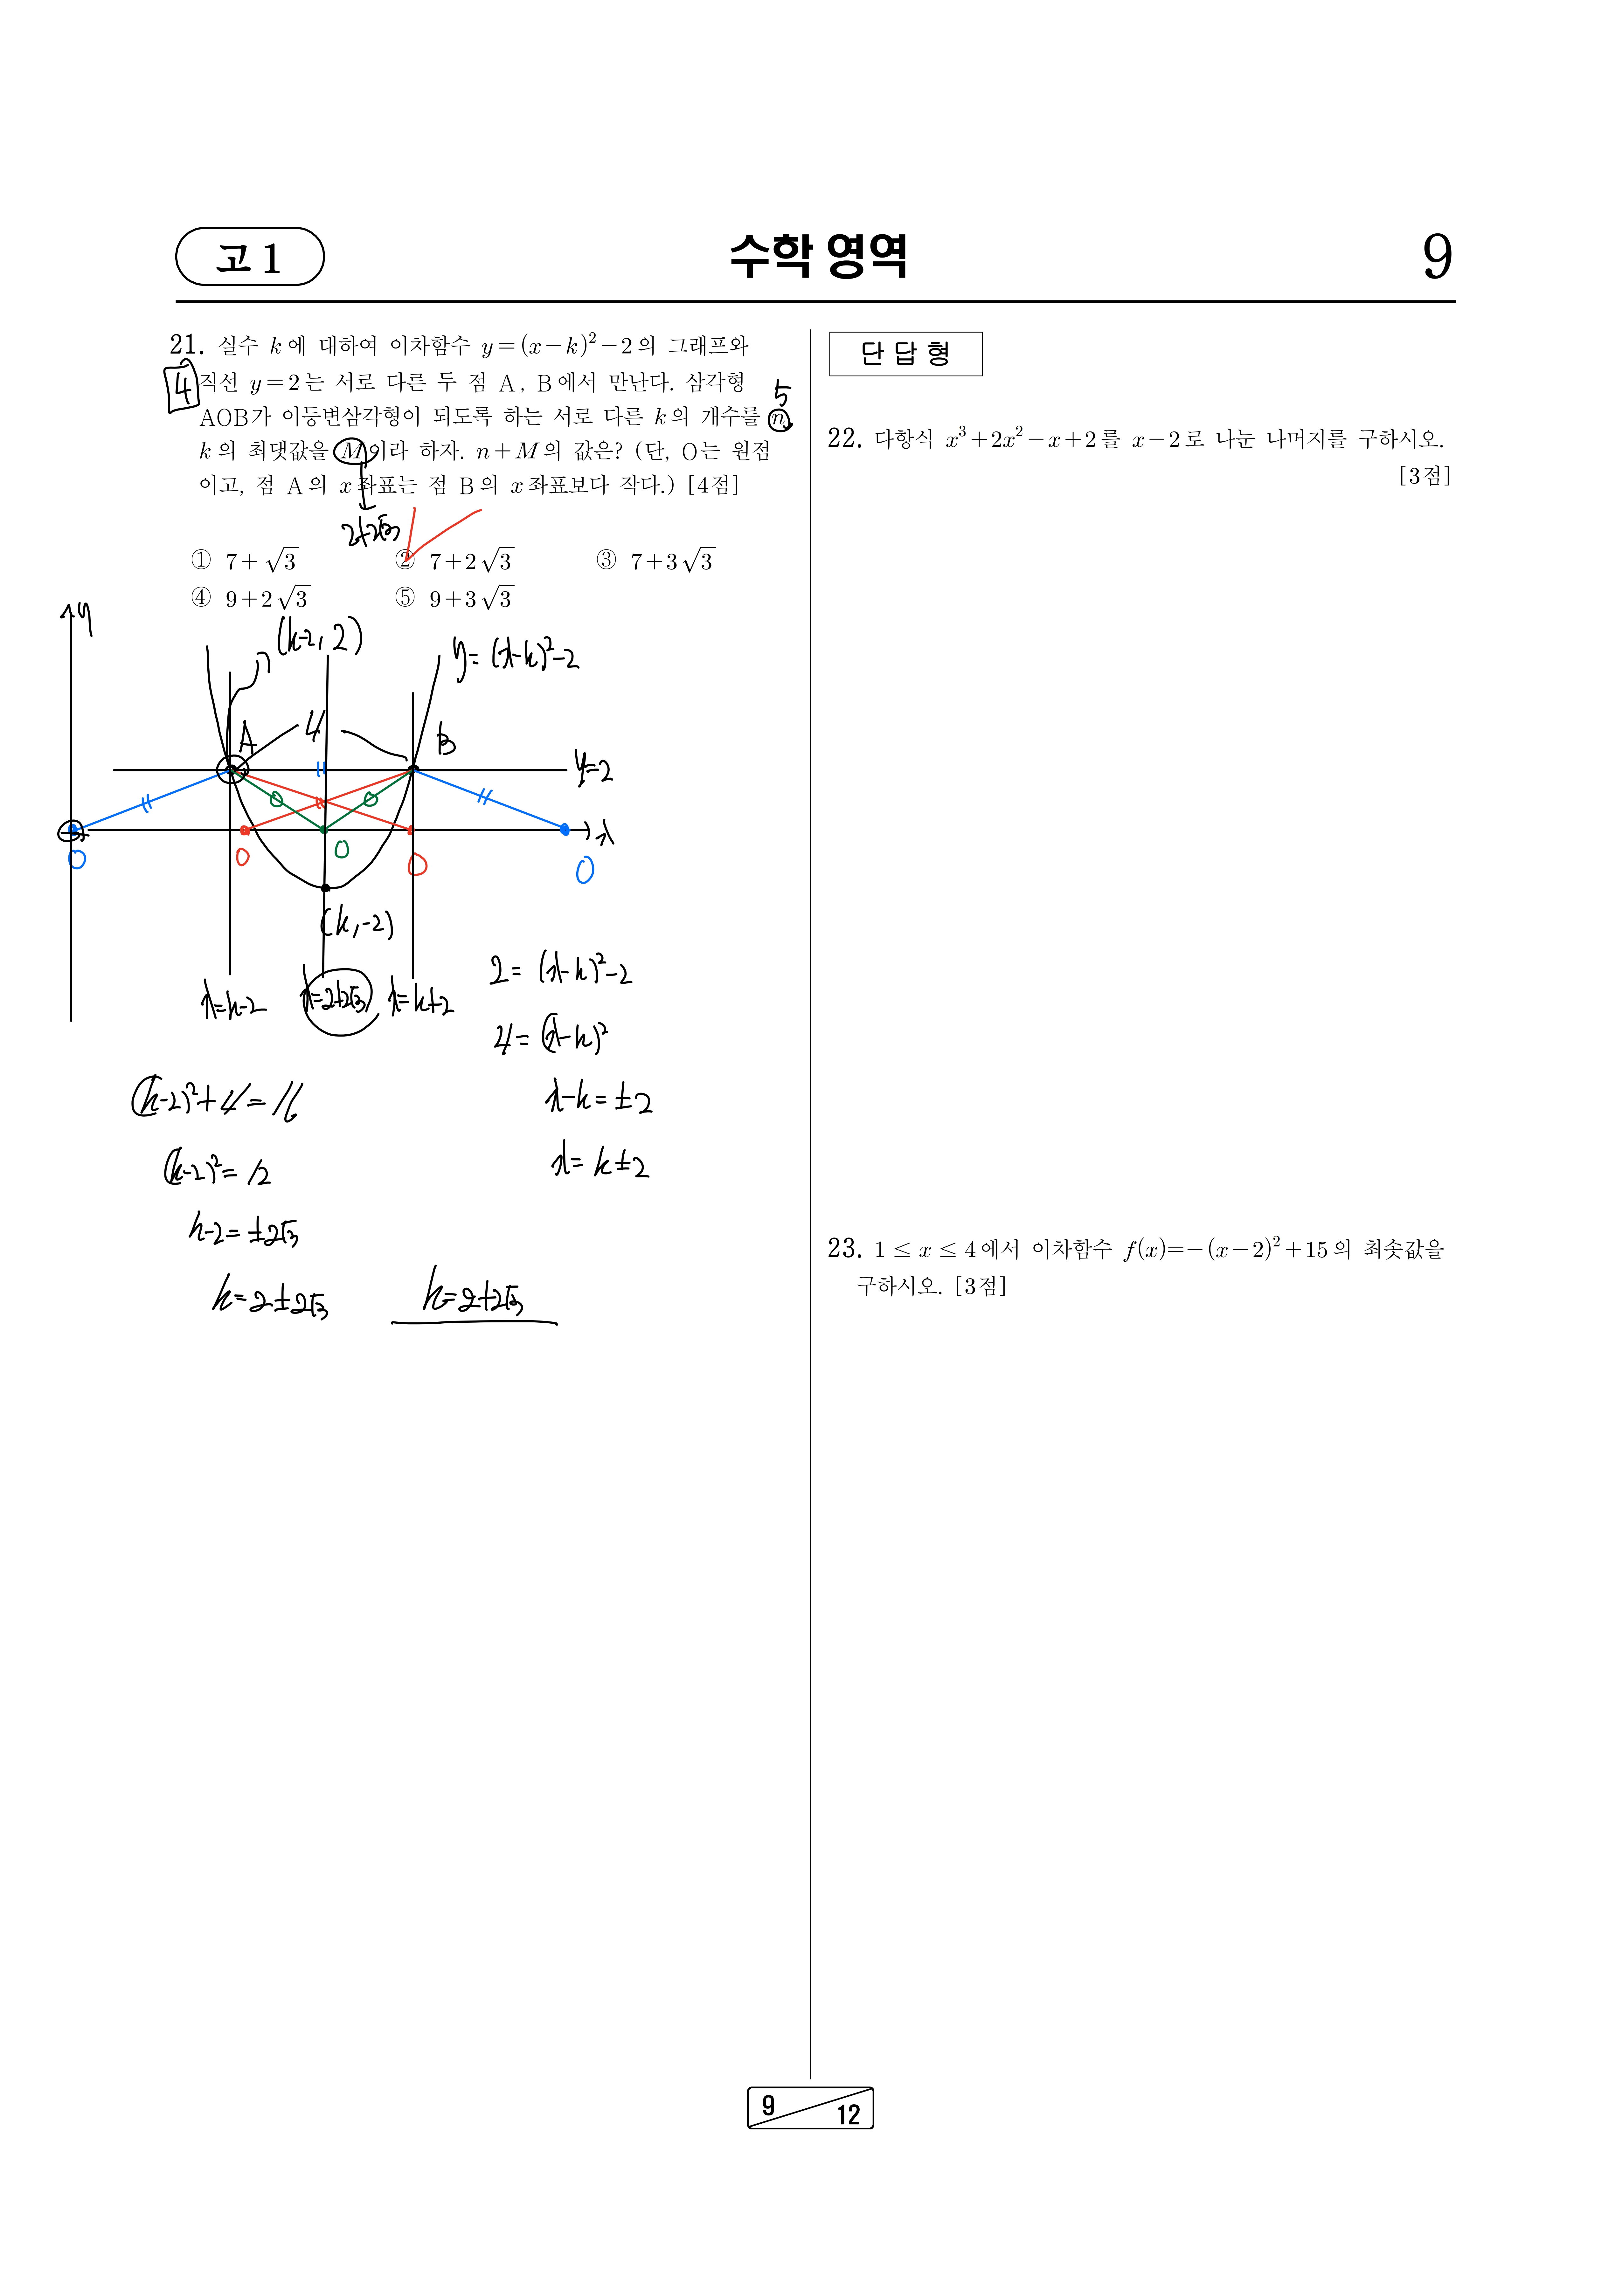 고 1
수학 영역
9
21. 실수 k에 대하여 이차함수 y=(x−k)²−2의 그래프와
4
직선 y=2는 서로 다른 두 점 A, B에서 만난다. 삼각형
5
AOB가 이등변삼각형이 되도록 하는 서로 다른 k의 개수를 n,
k의 최댓값을 M이라 하자. n+M의 값은? (단, O는 원점
이고, 점 A의 x좌표는 점 B의 x좌표보다 작다.) [4점]
2+2√3
① 7+√3 ② 7+2√3 ③ 7+3√3
④ 9+2√3 ⑤ 9+3√3
y
(k-2, 2)
y=(x-k)²-2
A 4 B
y=2
x
O O O O O
(k, -2)
x=k-2 x=2+2√3 x=k+2
2=(x-k)²-2
4=(x-k)²
x-k=±2
x=k±2
(k-2)²+4=16
(k-2)²=12
k-2=±2√3
k=2±2√3 k=2+2√3
단 답 형
22. 다항식 x³+2x²−x+2를 x−2로 나눈 나머지를 구하시오.
[3점]
23. 1≤x≤4에서 이차함수 f(x)=−(x−2)²+15의 최솟값을
구하시오. [3점]
9 12